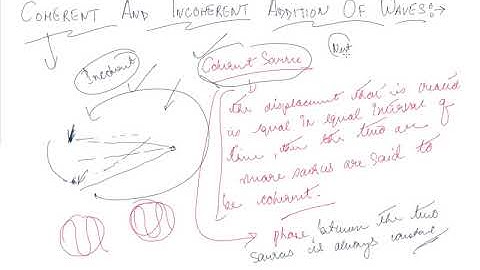 COHERENT AND INCOHERENT ADDITION OF WAVES:→
Next
Incoherent
Coherent Source
the displacement that is created
is equal in equal interval of
time, then the two are of
more sources are said to
be coherent.
phase between the two
sources is always constant